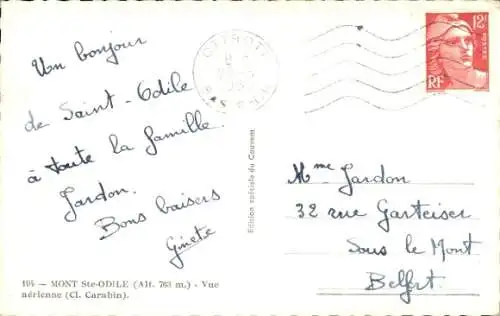 Un bonjour
de Saint-Odile
à toute la famille
Jardon.
Bons baisers
Ginete
105 — MONT Ste-ODILE (Alt. 763 m.) - Vue
aérienne (Cl. Carabin).
Edition spéciale du Couvent
12F
POSTES
RF
Mme Jardon
32 rue Garteiser
Sous le Mont
Belfort.